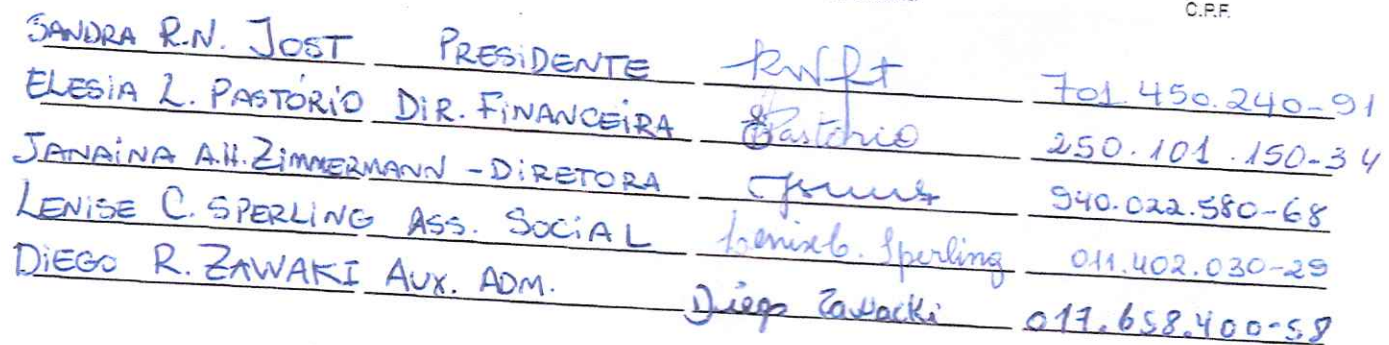 C.P.F.
SANDRA R.N. JOST PRESIDENTE 701.450.240-91
ELESIA L. PASTÓRIO DIR. FINANCEIRA Pastório 250.101.150-34
JANAINA A.H. ZIMMERMANN - DIRETORA 940.022.580-68
LENISE C. SPERLING ASS. SOCIAL Lenise C. Sperling 011.402.030-29
DIEGO R. ZAWAKI AUX. ADM. Diego Zawacki 017.658.400-58